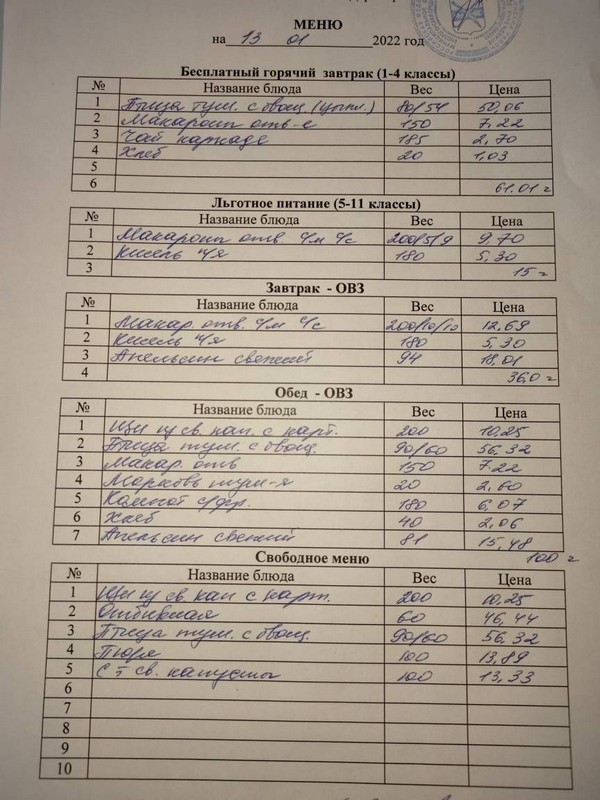 МЕНЮ
на 13 01 2022 год
Бесплатный горячий завтрак (1-4 классы)
№ Название блюда Вес Цена
1 Птица туш. с овощ. (цыпл.) 80/54 50,06
2 Макароны отв-е 150 7,22
3 Чай каркаде 185 2,70
4 Хлеб 20 1,03
5
6 61.01 г
Льготное питание (5-11 классы)
№ Название блюда Вес Цена
1 Макароны отв. ч/м ч/с 200/5/9 9,70
2 Кисель ч/я 180 5,30
3 15 г
Завтрак - ОВЗ
№ Название блюда Вес Цена
1 Макар. отв. ч/м ч/с 200/10/10 12,69
2 Кисель ч/я 180 5,30
3 Апельсин свежий 94 18,01
4 36,0 г
Обед - ОВЗ
№ Название блюда Вес Цена
1 Щи из св. кап. с карт. 200 10,25
2 Птица туш. с овощ. 90/60 56,32
3 Макар. отв 150 7,22
4 Морковь туш-я 20 2,60
5 Компот с/фр. 180 6,07
6 Хлеб 40 2,06
7 Апельсин свежий 81 15,48
100 г
Свободное меню
№ Название блюда Вес Цена
1 Щи из св. кап с карт. 200 10,25
2 Отбивная 60 46,44
3 Птица туш. с овощ. 90/60 56,32
4 Пюре 100 13,89
5 С-т св. капусты 100 13,33
6
7
8
9
10